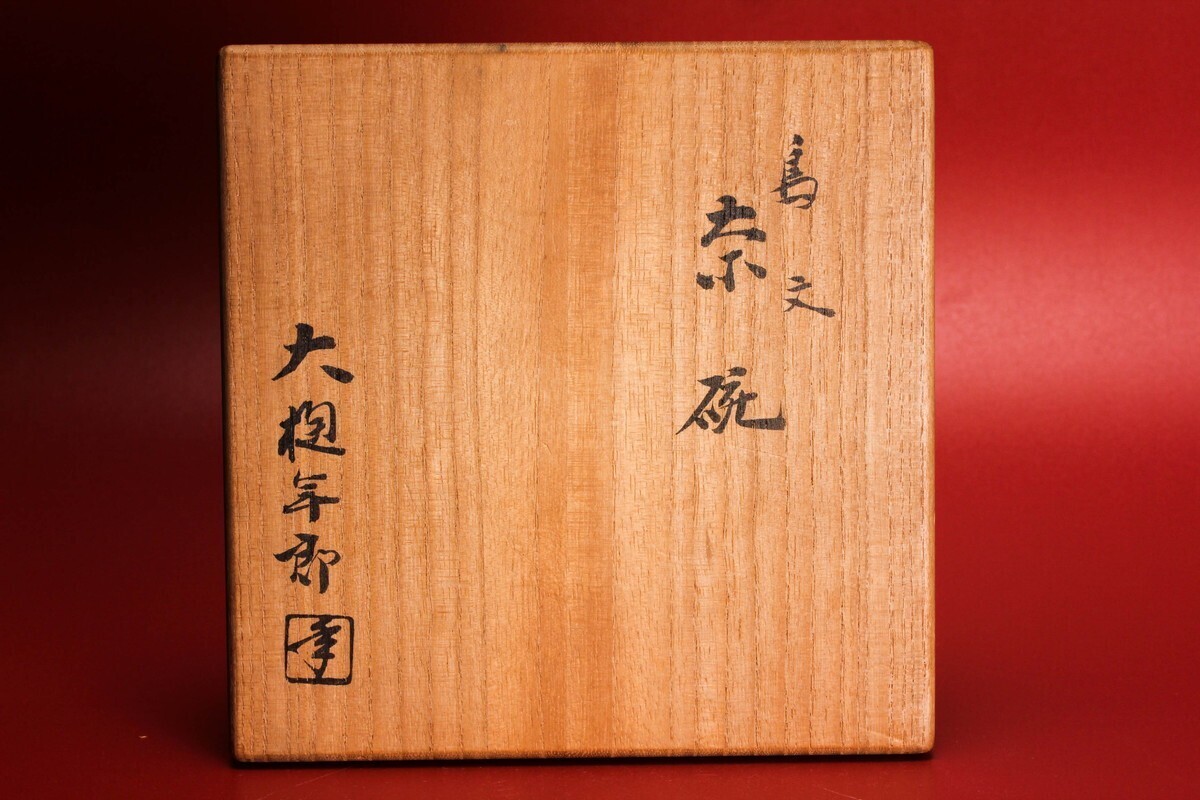 鳥文
茶碗
大樋年郎
年